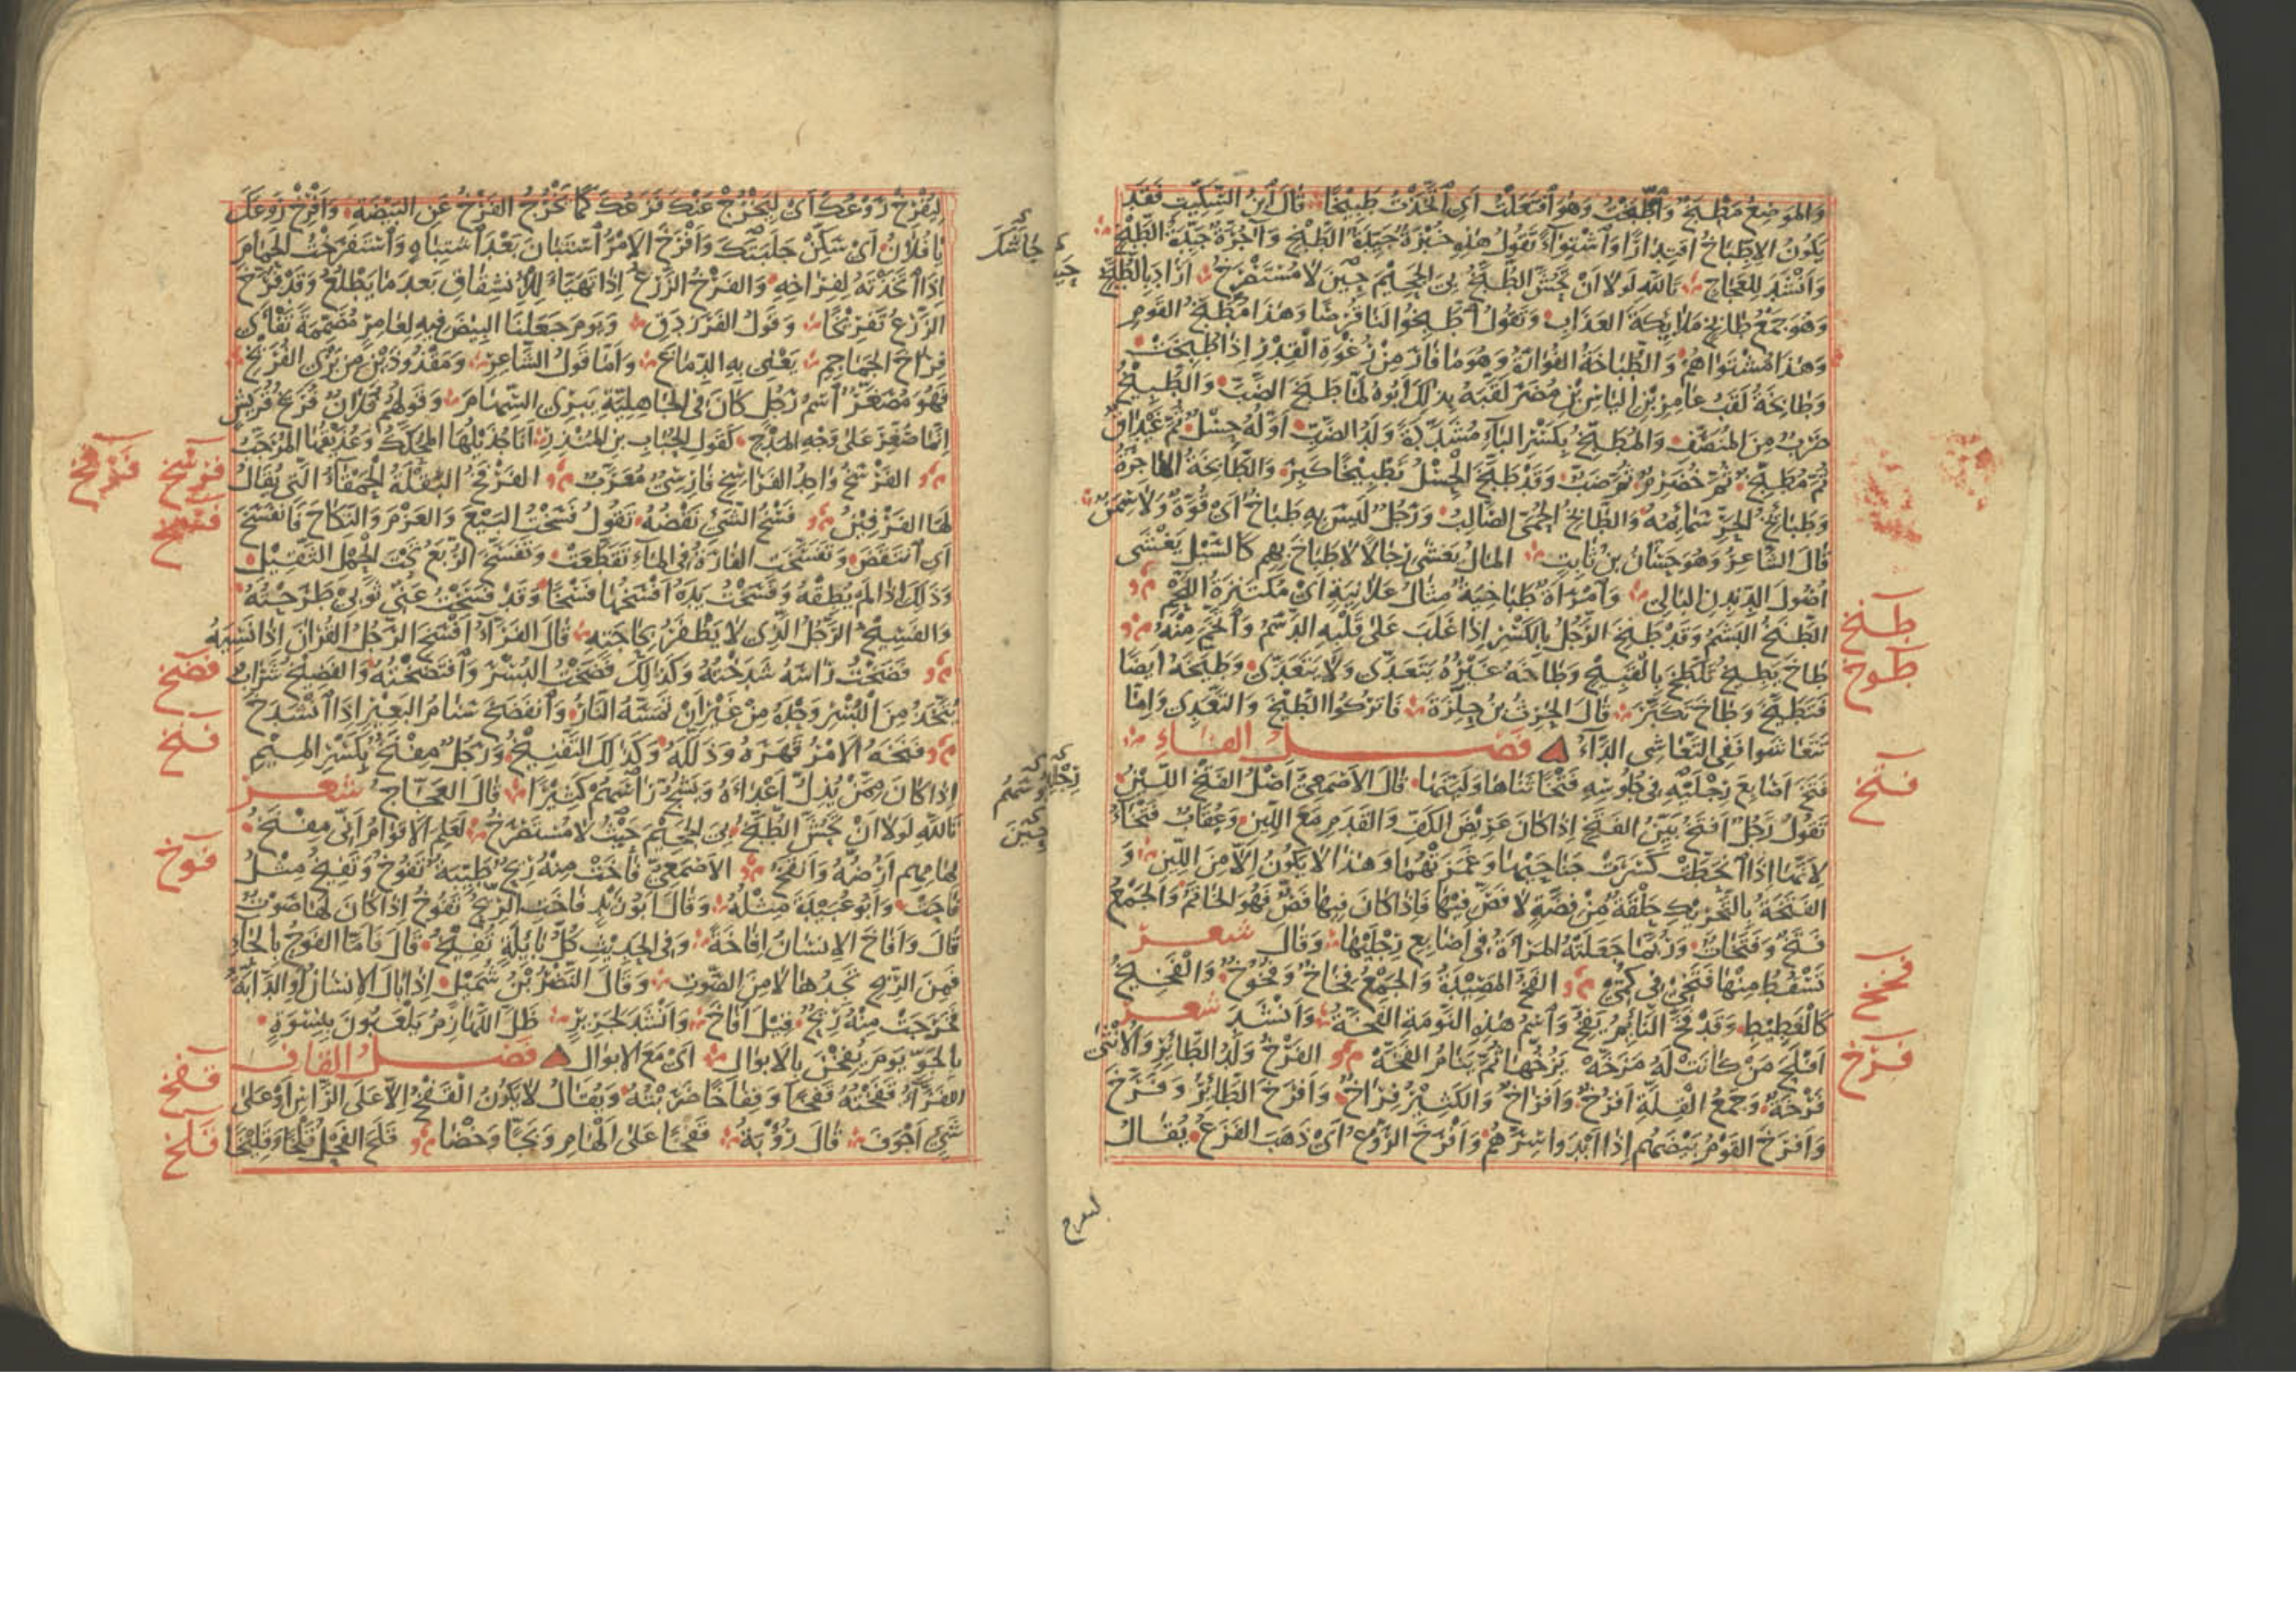 وَالمَوضِعُ مَطْبَخٌ وَاطَّبَخْتُ وَهُوَ افْتَعَلْتُ اَىِ اتَّخَذْتُ طَبِيْخًا قَالَ ابْنُ السِّكِّيْتِ فَقَدْ
يَكُونُ الاِطِّبَاخُ اقْتِدَارًا وَاشْتِوَآءً تَقُولُ هٰذِهِ خُبْزَةٌ جَيِّدَةُ الطَّبْخِ وَآجُرَّةٌ جَيِّدَةُ الطَّبْخِ
وَاَنْشَدَ لِلْعَجَّاجِ تَاللّٰهِ لَولاَ اَنْ تَحُشَّ الطُّبَّخُ بِىَ الجَحِيْمَ حِيْنَ لاَ مُسْتَصْرَخُ اَرَادَ بِالطُّبَّخِ
وَهُوَ جَمْعُ طَابِخٍ مَلاَئِكَةَ العَذَابِ وَتَقُولُ اطَّبِخُوا لَنَا قُرْصًا وَهٰذَا مُطَّبَخُ القَومِ
وَهٰذَا مُشْتَوَاهُمْ وَالطُّبَاخَةُ الفُوَارَةُ وَهُوَ مَا فَارَ مِنْ رُغْوَةِ القِدْرِ اِذَا طُبِخَتْ
وَطَابِخَةُ لَقَبُ عَامِرِ بْنِ اليَاسِ بْنِ مُضَرَ لَقَّبَهُ بِذٰلِكَ اَبُوهُ لَمَّا طَبَخَ الضَّبَّ وَالطَّبِيْخُ
ضَرْبٌ مِنَ المُنَصَّفِ وَالمُطَبِّخُ بِكَسْرِ البَآءِ مُشَدَّدَةً وَلَدُ الضَّبِّ اَوَّلُهُ حِسْلٌ ثُمَّ غَيْدَاقٌ
ثُمَّ مُطَبِّخٌ ثُمَّ خُضَرِمٌ ثُمَّ ضَبٌّ وَقَدْ طَبَّخَ الحِسْلُ تَطْبِيْخًا كَبِرَ وَالطَّابِخَةُ الهَاجِرَةُ
وَطَبَائِخُ الحَرِّ سَمَائِمُهُ وَالطَّابِخُ الحُمَّى الصَّالِبُ وَرَجُلٌ لَيْسَ بِهِ طَبَاخٌ اَىْ قُوَّةٌ وَلاَ سِمَنٌ
قَالَ الشَّاعِرُ وَهُوَ حَسَّانُ بْنُ ثَابِتٍ المَالُ يَغْشَى رِجَالاً لاَ طَبَاخَ بِهِمِ كَالسَّيْلِ يَغْشَى
اُصُولَ الدِّنْدِنِ البَالِى وَامْرَاَةٌ طَبَاخِيَةٌ مِثَالُ عَلاَنِيَةٍ اَىْ مُكْتَنِزَةُ اللَّحْمِ
الطَّنَخُ البَشَمُ وَقَدْ طَنِخَ الرَّجُلُ بِالكَسْرِ اِذَا غَلَبَ عَلَى قَلْبِهِ الدَّسَمُ وَاتَّخَمَ مِنْهُ
طَاخَ يَطِيْخُ تَلَطَّخَ بِالقَبِيْحِ وَطَاخَهُ غَيْرُهُ يَتَعَدَّى وَلاَ يَتَعَدَّى وَطَيَّخَهُ اَيْضًا
فَتَطَيَّخَ وَطَاخَ تَكَبَّرَ قَالَ الحٰرِثُ بْنُ حِلِّزَةَ فَاتْرُكُوا الطَّيْخَ وَالتَّعَدِّى وَاِمَّا
تَتَعَاشَوا فَفِى التَّعَاشِى الدَّآءُ فَصْلُ الفَآءِ
فَتَخَ اَصَابِعَ رِجْلَيْهِ فِى جُلُوسِهِ فَتْخًا ثَنَاهَا وَلَيَّنَهَا قَالَ الاَصْمَعِىُّ اَصْلُ الفَتَخِ اللِّيْنُ
تَقُولُ رَجُلٌ اَفْتَخُ بَيِّنُ الفَتَخِ اِذَا كَانَ عَرِيْضَ الكَفِّ وَالقَدَمِ مَعَ اللِّيْنِ وَعُقَابٌ فَتْخَآءُ
لاَنَّهَا اِذَا انْحَطَّتْ كَسَرَتْ جَنَاحَيْهَا وَغَمَزَتْهُمَا وَهٰذَا لاَ يَكُونُ اِلاَّ مِنَ اللِّيْنِ وَ
الفَتَخَةُ بِالتَّحْرِيْكِ حَلْقَةٌ مِنْ فِضَّةٍ لاَ فَصَّ فِيْهَا فَاِذَا كَانَ فِيْهَا فَصٌّ فَهُوَ الخَاتَمُ وَالجَمْعُ
فَتَخٌ وَفَتَخَاتٌ وَرُبَّمَا جَعَلَتْهُ المَرْاَةُ فِى اَصَابِعِ رِجْلَيْهَا وَقَالَ شعر
تَسْقُطُ مِنْهَا فَتَخِى فِى كُمِّى الفَخُّ المِصْيَدَةُ وَالجَمْعُ فِخَاخٌ وَفُخُوخٌ وَالفَخِيْخُ
كَالغَطِيْطِ وَقَدْ فَخَّ النَّائِمُ يَفِخُّ وَاسْمُ هٰذِهِ النَّومَةِ الفَخَّةُ وَاَنْشَدَ شعر
اَفْلَحَ مَنْ كَانَتْ لَهُ مَزَخَّهْ يَزُخُّهَا ثُمَّ يَنَامُ الفَخَّهْ الفَرْخُ وَلَدُ الطَّائِرِ وَالاُنْثَى
فَرْخَةٌ وَجَمْعُ القِلَّةِ اَفْرُخٌ وَاَفْرَاخٌ وَالكَثِيْرُ فِرَاخٌ وَاَفْرَخَ الطَّائِرُ وَفَرَّخَ
وَاَفْرَخَ القَوْمُ بَيْضَهُمْ اِذَا اَبْدَوا سِرَّهُمْ وَاَفْرَخَ الرَّوْعُ اَىْ ذَهَبَ الفَزَعُ يُقَالُ
طنخ
طوخ
فتخ
فخخ
فرخ
ليفرخ
لِيُفْرِخْ رَوْعُكَ اَىْ لِيَخْرُجْ عَنْكَ فَزَعُكَ كَمَا يَخْرُجُ الفَرْخُ عَنِ البَيْضَةِ وَاَفْرِخْ رَوْعَكَ
يَا فُلاَنُ اَىْ سَكِّنْ جَلَبَتَكَ وَاَفْرَخَ الاَمْرُ اسْتَبَانَ بَعْدَ اشْتِبَاهٍ وَاسْتَفْرَخْتُ الحَمَامَ
اِذَا اتَّخَذْتَهُ لِفِرَاخِهِ وَالفَرْخُ الزَّرْعُ اِذَا تَهَيَّاَ لِلاِنْشِقَاقِ بَعْدَ مَا يَطْلُعُ وَقَدْ فَرَّخَ
الزَّرْعُ تَفْرِيْخًا وَقَولُ الفَرَزْدَقِ وَيَومَ جَعَلْنَا البِيْضَ فِيْهِ لِعَامِرٍ مُصَمِّمَةً تَفْاٰى
فِرَاخَ الجَمَاجِمِ يَعْنِى بِهِ الدِّمَاغَ وَاَمَّا قَولُ الشَّاعِرِ وَمَقْذُوذَيْنِ مِنْ بَرْىِ الفُرَيْخِ
فَهُوَ مُصَغَّرٌ اسْمُ رَجُلٍ كَانَ فِى الجَاهِلِيَّةِ يَبْرِى السِّهَامَ وَقَولُهُمْ فُلاَنٌ فُرَيْخُ قُرَيْشٍ
اِنَّمَا صُغِّرَ عَلَى وَجْهِ المَدْحِ كَقَولِ الحُبَابِ بْنِ المُنْذِرِ اَنَا جُذَيْلُهَا المُحَكَّكُ وَعُذَيْقُهَا المُرَجَّبُ
الفَرْسَخُ وَاحِدُ الفَرَاسِخِ فَارِسِىٌّ مُعَرَّبٌ الفَرْفَخُ البَقْلَةُ الحَمْقَآءُ الَّتِى يُقَالُ
لَهَا الفَرْفِيْنُ فَسْخُ الشَّىْءِ نَقْضُهُ تَقُولُ فَسَخْتُ البَيْعَ وَالعَزْمَ وَالنِّكَاحَ فَانْفَسَخَ
اَىِ انْتَقَضَ وَتَفَسَّخَتِ الفَارَةُ فِى المَآءِ تَقَطَّعَتْ وَتَفَسَّخَ الرُّبَعُ تَحْتَ الحِمْلِ الثَّقِيْلِ
وَذٰلِكَ اِذَا لَمْ يُطِقْهُ وَفَسَخْتُ يَدَهُ اَفْسَخُهَا فَسْخًا وَقَدْ فَسَخْتُ عَنِّى ثَوبِىْ طَرَحْتُهُ
وَالفَسِيْخُ الرَّجُلُ الَّذِى لاَ يَظْفَرُ بِحَاجَتِهِ قَالَ الفَرَّآءُ اَفْسَخَ الرَّجُلُ القُرْاٰنَ اِذَا نَسِيَهُ
فَضَخْتُ رَاسَهُ شَدَخْتُهُ وَكَذٰلِكَ فَضَخْتُ البُسْرَ وَافْتَضَخْتُهُ وَالفَضِيْخُ شَرَابٌ
يُتَّخَذُ مِنَ البُسْرِ وَحْدَهُ مِنْ غَيْرِ اَنْ تَمَسَّهُ النَّارُ وَانْفَضَخَ سَنَامُ البَعِيْرِ اِذَا انْشَدَخَ
فَنَخَهُ الاَمْرُ قَهَرَهُ وَذَلَّلَهُ وَكَذٰلِكَ التَّفْنِيْخُ وَرَجُلٌ مِفْنَخٌ بِكَسْرِ المِيْمِ
اِذَا كَانَ مِمَّنْ يُذِلُّ اَعْدَاءَهُ وَيَشُجُّ رَاسَهُمْ كَثِيْرًا قَالَ العَجَّاجُ شعر
تَاللّٰهِ لَولاَ اَنْ تَحُشَّ الطُّبَّخُ بِىَ الجَحِيْمَ حَيْثُ لاَ مُسْتَصْرَخُ لَعَلِمَ الاَقْوَامُ اَنِّى مِفْنَخُ
لِهَامِهِمْ اَرُضُّهُ وَاَنْقَخُ الاَصْمَعِىُّ فَاخَتْ مِنْهُ رِيْحٌ طَيِّبَةٌ تَفُوخُ وَتَفِيْخُ مِثْلُ
فَاحَتْ وَاَبُو عُبَيْدَةَ مِثْلُهُ وَقَالَ اَبُو زَيْدٍ فَاخَتِ الرِّيْحُ تَفُوخُ اِذَا كَانَ لَهَا صَوْتٌ
قَالَ وَاَفَاخَ الاِنْسَانُ اِفَاخَةً وَفِى الحَدِيْثِ كُلُّ بَائِلَةٍ تُفِيْخُ قَالَ فَاَمَّا الفَوحُ بِالحَآءِ
فَمِنَ الرِّيْحِ تَجِدُهَا لاَ مِنَ الصَّوتِ وَقَالَ النَّضْرُ بْنُ شُمَيْلٍ اِذَا بَالَ الاِنْسَانُ اَوِ الدَّابَّةُ
فَخَرَجَتْ مِنْهُ رِيْحٌ قِيْلَ اَفَاخَ وَاَنْشَدَ لِجَرِيْرٍ ظَلَّ اللَّهَازِمُ يَلْعَبُونَ بِنِسْوَةٍ
بِالجَوِّ يَومَ يُفِخْنَ بِالاَبْوَالِ اَىْ مَعَ الاَبْوَالِ فَصْلُ القَافِ
الفَرَّآءُ قَفَخْتُهُ قَفْخًا وَقِفَاخًا ضَرَبْتُهُ وَيُقَالُ لاَ يَكُونُ القَفْخُ اِلاَّ عَلَى الرَّاسِ اَوْ عَلَى
شَىْءٍ اَجْوَفَ قَالَ رُؤْبَةُ قَفْخًا عَلَى الهَامِ وَبَجًّا وَخْضَا قَلَخَ الفَحْلُ قَلْخًا وَقَلِيْخًا
فرسخ
فرفخ
فسخ
فضخ
فنخ
فوخ
قفخ
قلخ